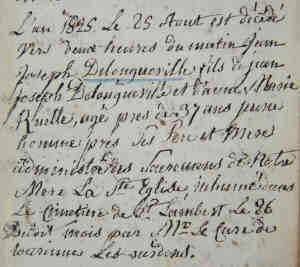 L'an 1825. Le 25 Aout est décédé
vers deux heures du matin Jean
Joseph Delonqueville fils de jean
joseph Delonqueville et d'anne Marie
agé pres de 37 ans jeune
homme près ses Pere et Mere
administré des Sacremens de Notre
Mere La Ste Eglise, inhumé dans
Le Cimetiere de St Lambert Le 26
Dudit mois par Mr Le Curé de
les